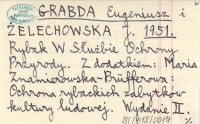 GRABDA Eugeniusz i
ŻELECHOWSKA J. 1951.
Rybak W Służbie Ochrony
Przyrody. Z dodatkiem: Maria
Znamierowska-Prüfferowa:
Ochrona rybackich zabytków
kultury ludowej. Wydanie II.